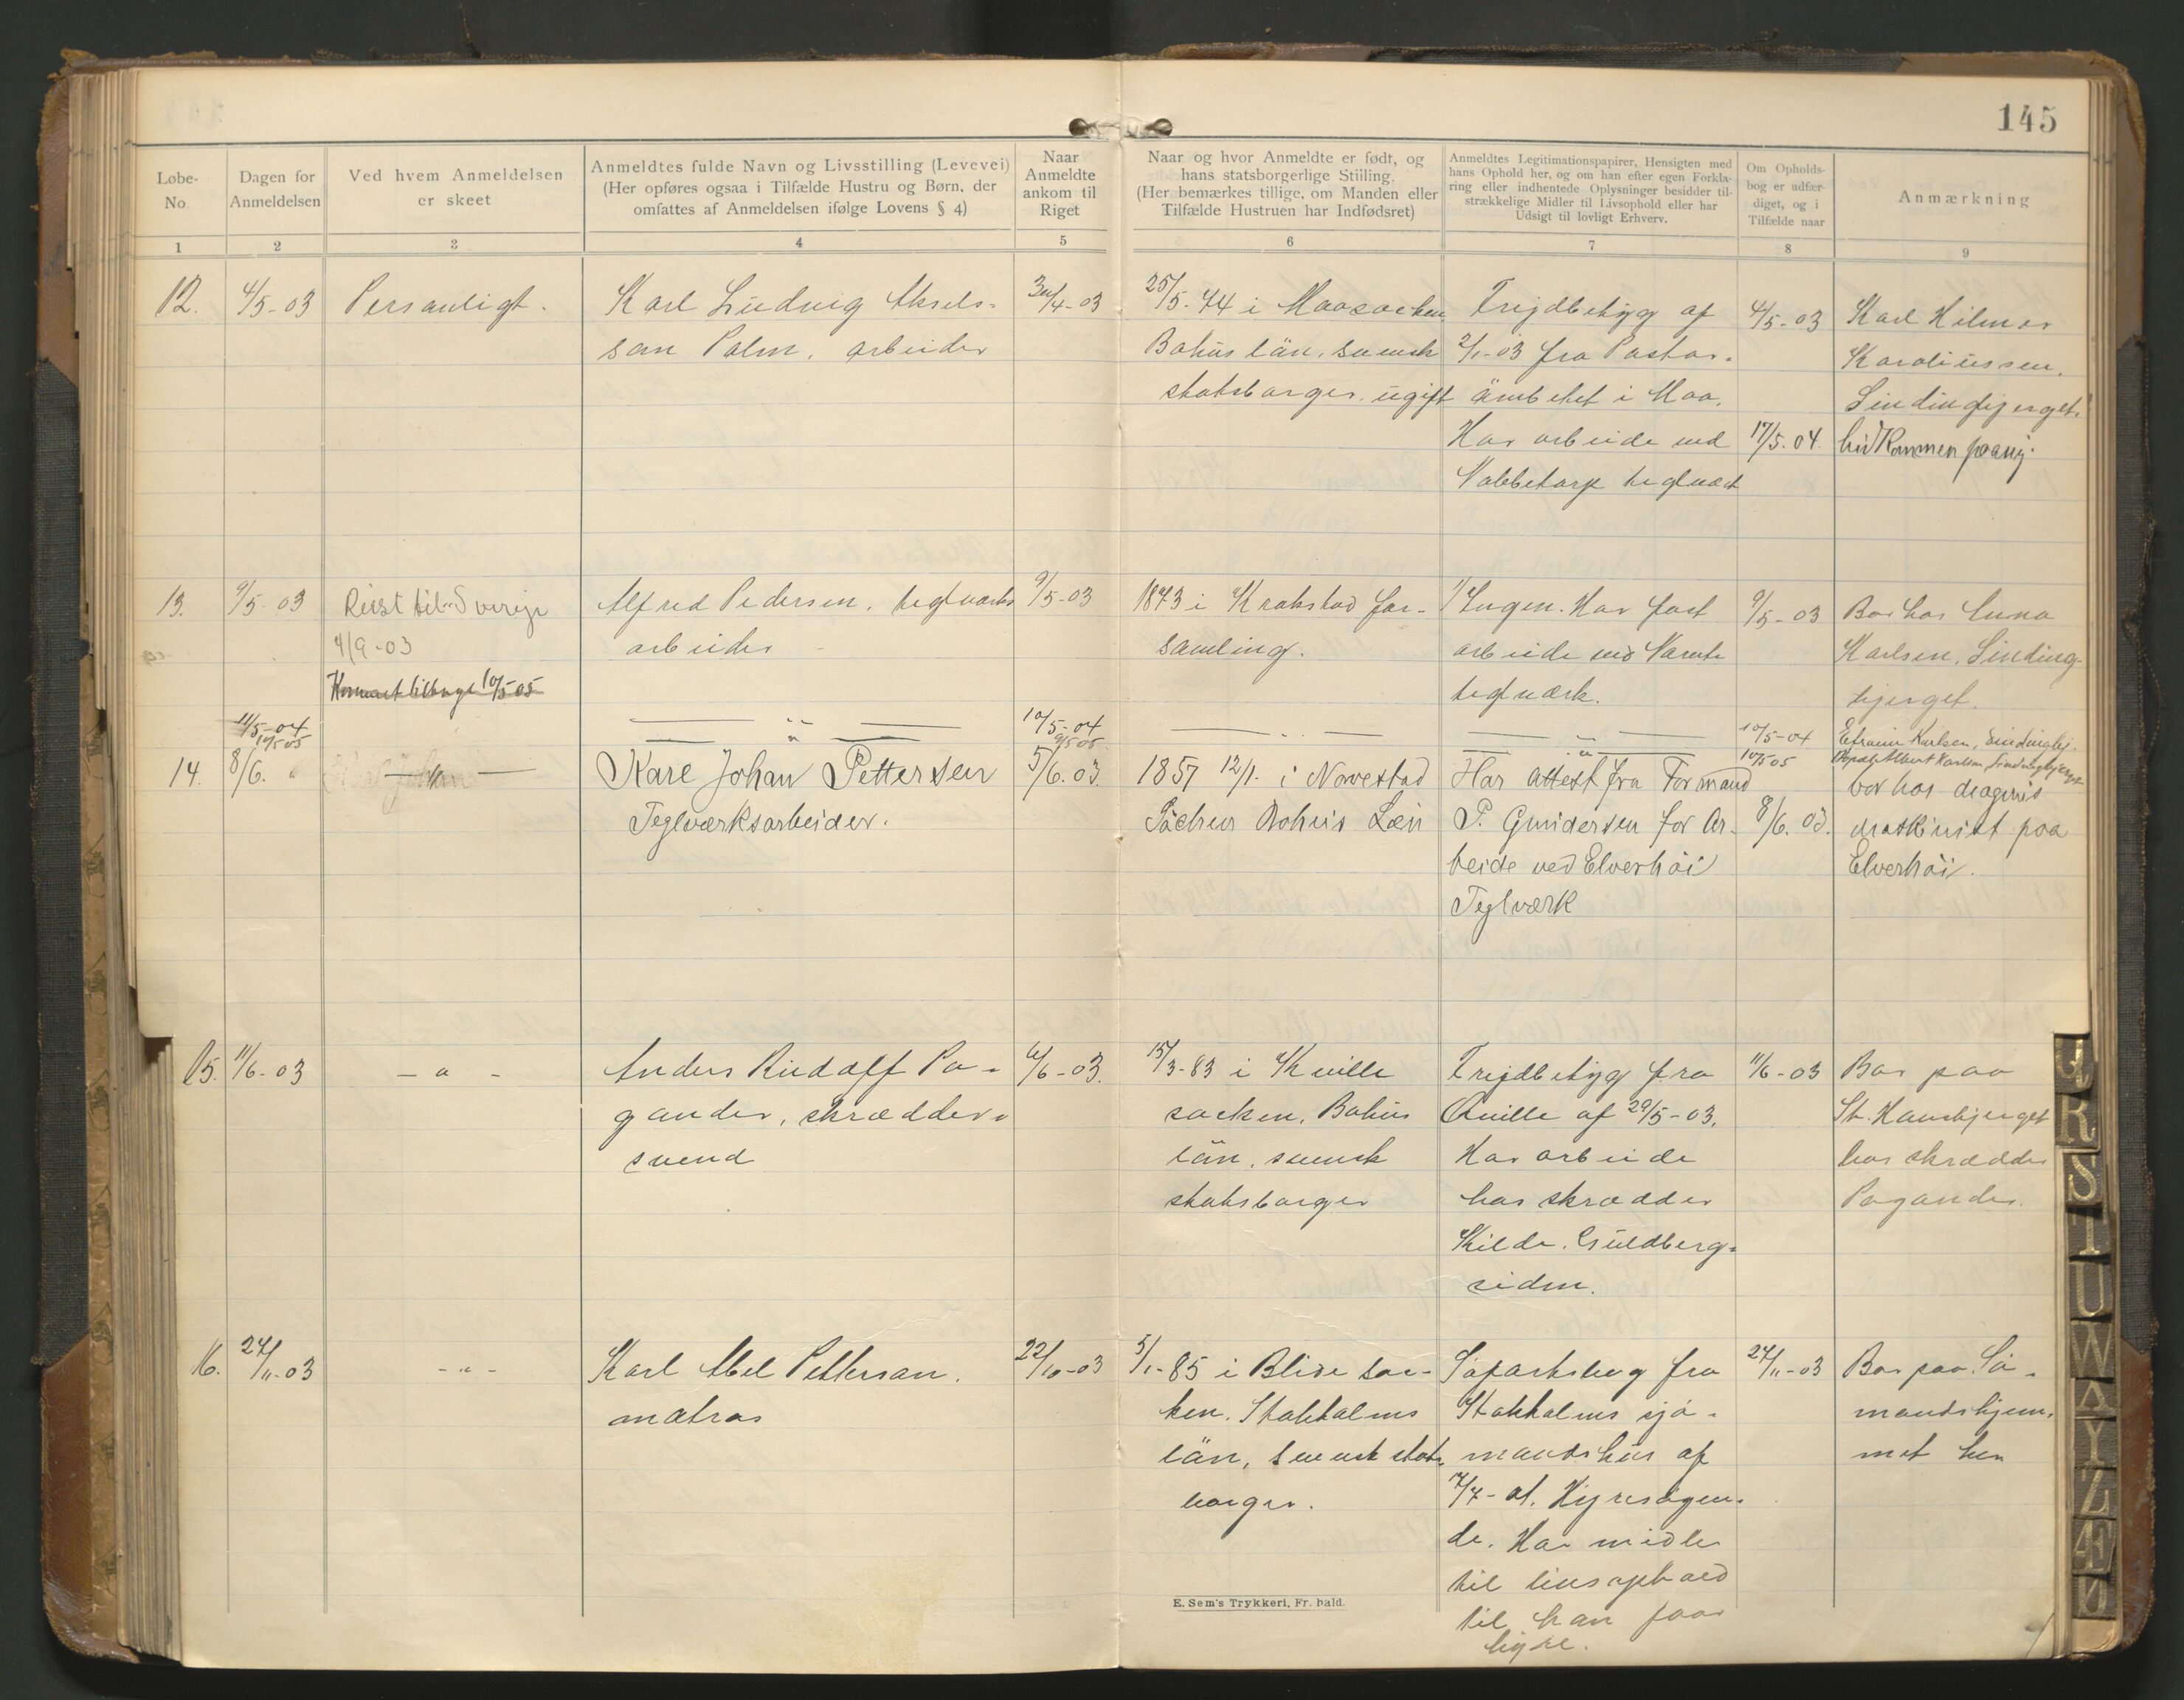 145
Løbe-
No.
Dagen for
Anmeldelsen
Ved hvem Anmeldelsen
er skeet
Anmeldtes fulde Navn og Livsstilling (Levevei)
(Her opføres ogsaa i Tilfælde Hustru og Børn, der
omfattes af Anmeldelsen ifølge Lovens § 4)
Naar
Anmeldte
ankom til
Riget
Naar og hvor Anmeldte er født, og
hans statsborgerlige Stiiling.
(Her bemærkes tillige, om Manden eller
Tilfælde Hustruen har Indfødsret)
Anmeldtes Legitimationspapirer, Hensigten med
hans Ophold her, og om han efter egen Forkla-
ring eller indhentede Oplysninger besidder til-
strækkelige Midler til Livsophold eller har
Udsigt til lovligt Erhverv.
Om Opholds-
bog er udfær-
diget, og i
Tilfælde naar
Anmærkning
1 2 3 4 5 6 7 8 9
12.
4/5-03
Personligt.
Karl Ludvig Aksels-
son Palm, arbeider
30/4-03
25/5-44 i Maasocken
Bohus län, svensk
statsborger, ugift
Frejdbetyg af
2/1-03 fra Pastor-
ämbetet i Moa.
Har arbeide ved
Nabbetorp teglværk
4/5-03
17/5.04.
Karl Hilmer
Karoliussen,
Sindingbjerget.
hid kommen paany.
13.
9/5-03
Reist til Sverige
4/9-03
Kommet tilbage 10/5 05
Alfred Pedersen, teglværks
arbeider
9/5-03
1873 i Krokstad for-
samling.
Ingen. Har fast
arbeide ved Narnte
teglværk.
9/5-03
Bor hos Anna
Karlsen, Sinding-
bjerget.
11/5-04
10/5 05
— " —
— " —
10/5-04
9/5 05
— " —
— " —
10/5-04
10/5 05
Efraim Karlsen, Sindingbj.
Albert Karlsen, Sindingbjerget
14.
8/6.
— " —
Karl Johan Pettersen
Teglværksarbeider.
5/6.03.
1857 12/1. i Navestad
Sächen Bohus Län
Har attest fra Formand
P. Gundersen for Ar-
beide ved Elverhöi
Teglværk
8/6.03.
bor hos
maskinist paa
Elverhöi.
15.
11/6-03
— " —
Anders Rudolf Po-
gander, skrædder-
svend
6/6-03.
15/3-83 i Kville
socken, Bohus
län, svensk
statsborger
Frejdbetyg fra
Qville af 29/5-03.
Har arbeide
hos skrædder
Kilde, Guldberg-
siden.
11/6-03
Bor paa
St. Hansbjerget
hos skrædder
Pogander.
16.
24/11-03
— " —
Karl Abel Petterson,
matros
22/10-03
5/1-85 i Blidö soc-
ken, Stokholms
län, svensk stats-
borger.
Søfartsbog fra
Stokholms sjö-
mandshus af
7/7-01. Hyresøgen-
de. Har midler
til livsophold
til han faar
hyre.
24/11-03
Bor paa Sø-
mandshjem-
met her
E. Sem's Trykkeri, Fr. hald.
Q
R
S
T
U
W
Y
Z
Æ
Ø